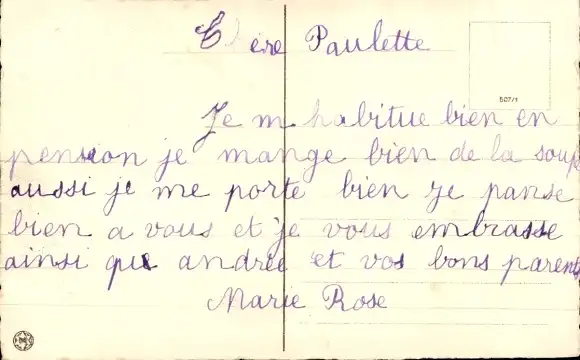 Chère Paulette
507/1
Je m habitue bien en
pension je mange bien de la soupe
aussi je me porte bien je panse
bien a vous et je vous embrasse
ainsi que andrée et vos bons parents
Marie Rose